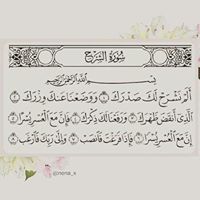 سُورَةُ الشَّرْحِ
بِسْمِ اللَّهِ الرَّحْمَٰنِ الرَّحِيمِ
أَلَمْ نَشْرَحْ لَكَ صَدْرَكَ ١ وَوَضَعْنَا عَنكَ وِزْرَكَ ٢
الَّذِي أَنقَضَ ظَهْرَكَ ٣ وَرَفَعْنَا لَكَ ذِكْرَكَ ٤ فَإِنَّ مَعَ الْعُسْرِ يُسْرًا ٥
إِنَّ مَعَ الْعُسْرِ يُسْرًا ٦ فَإِذَا فَرَغْتَ فَانصَبْ ٧ وَإِلَىٰ رَبِّكَ فَارْغَب ٨
@nena_x